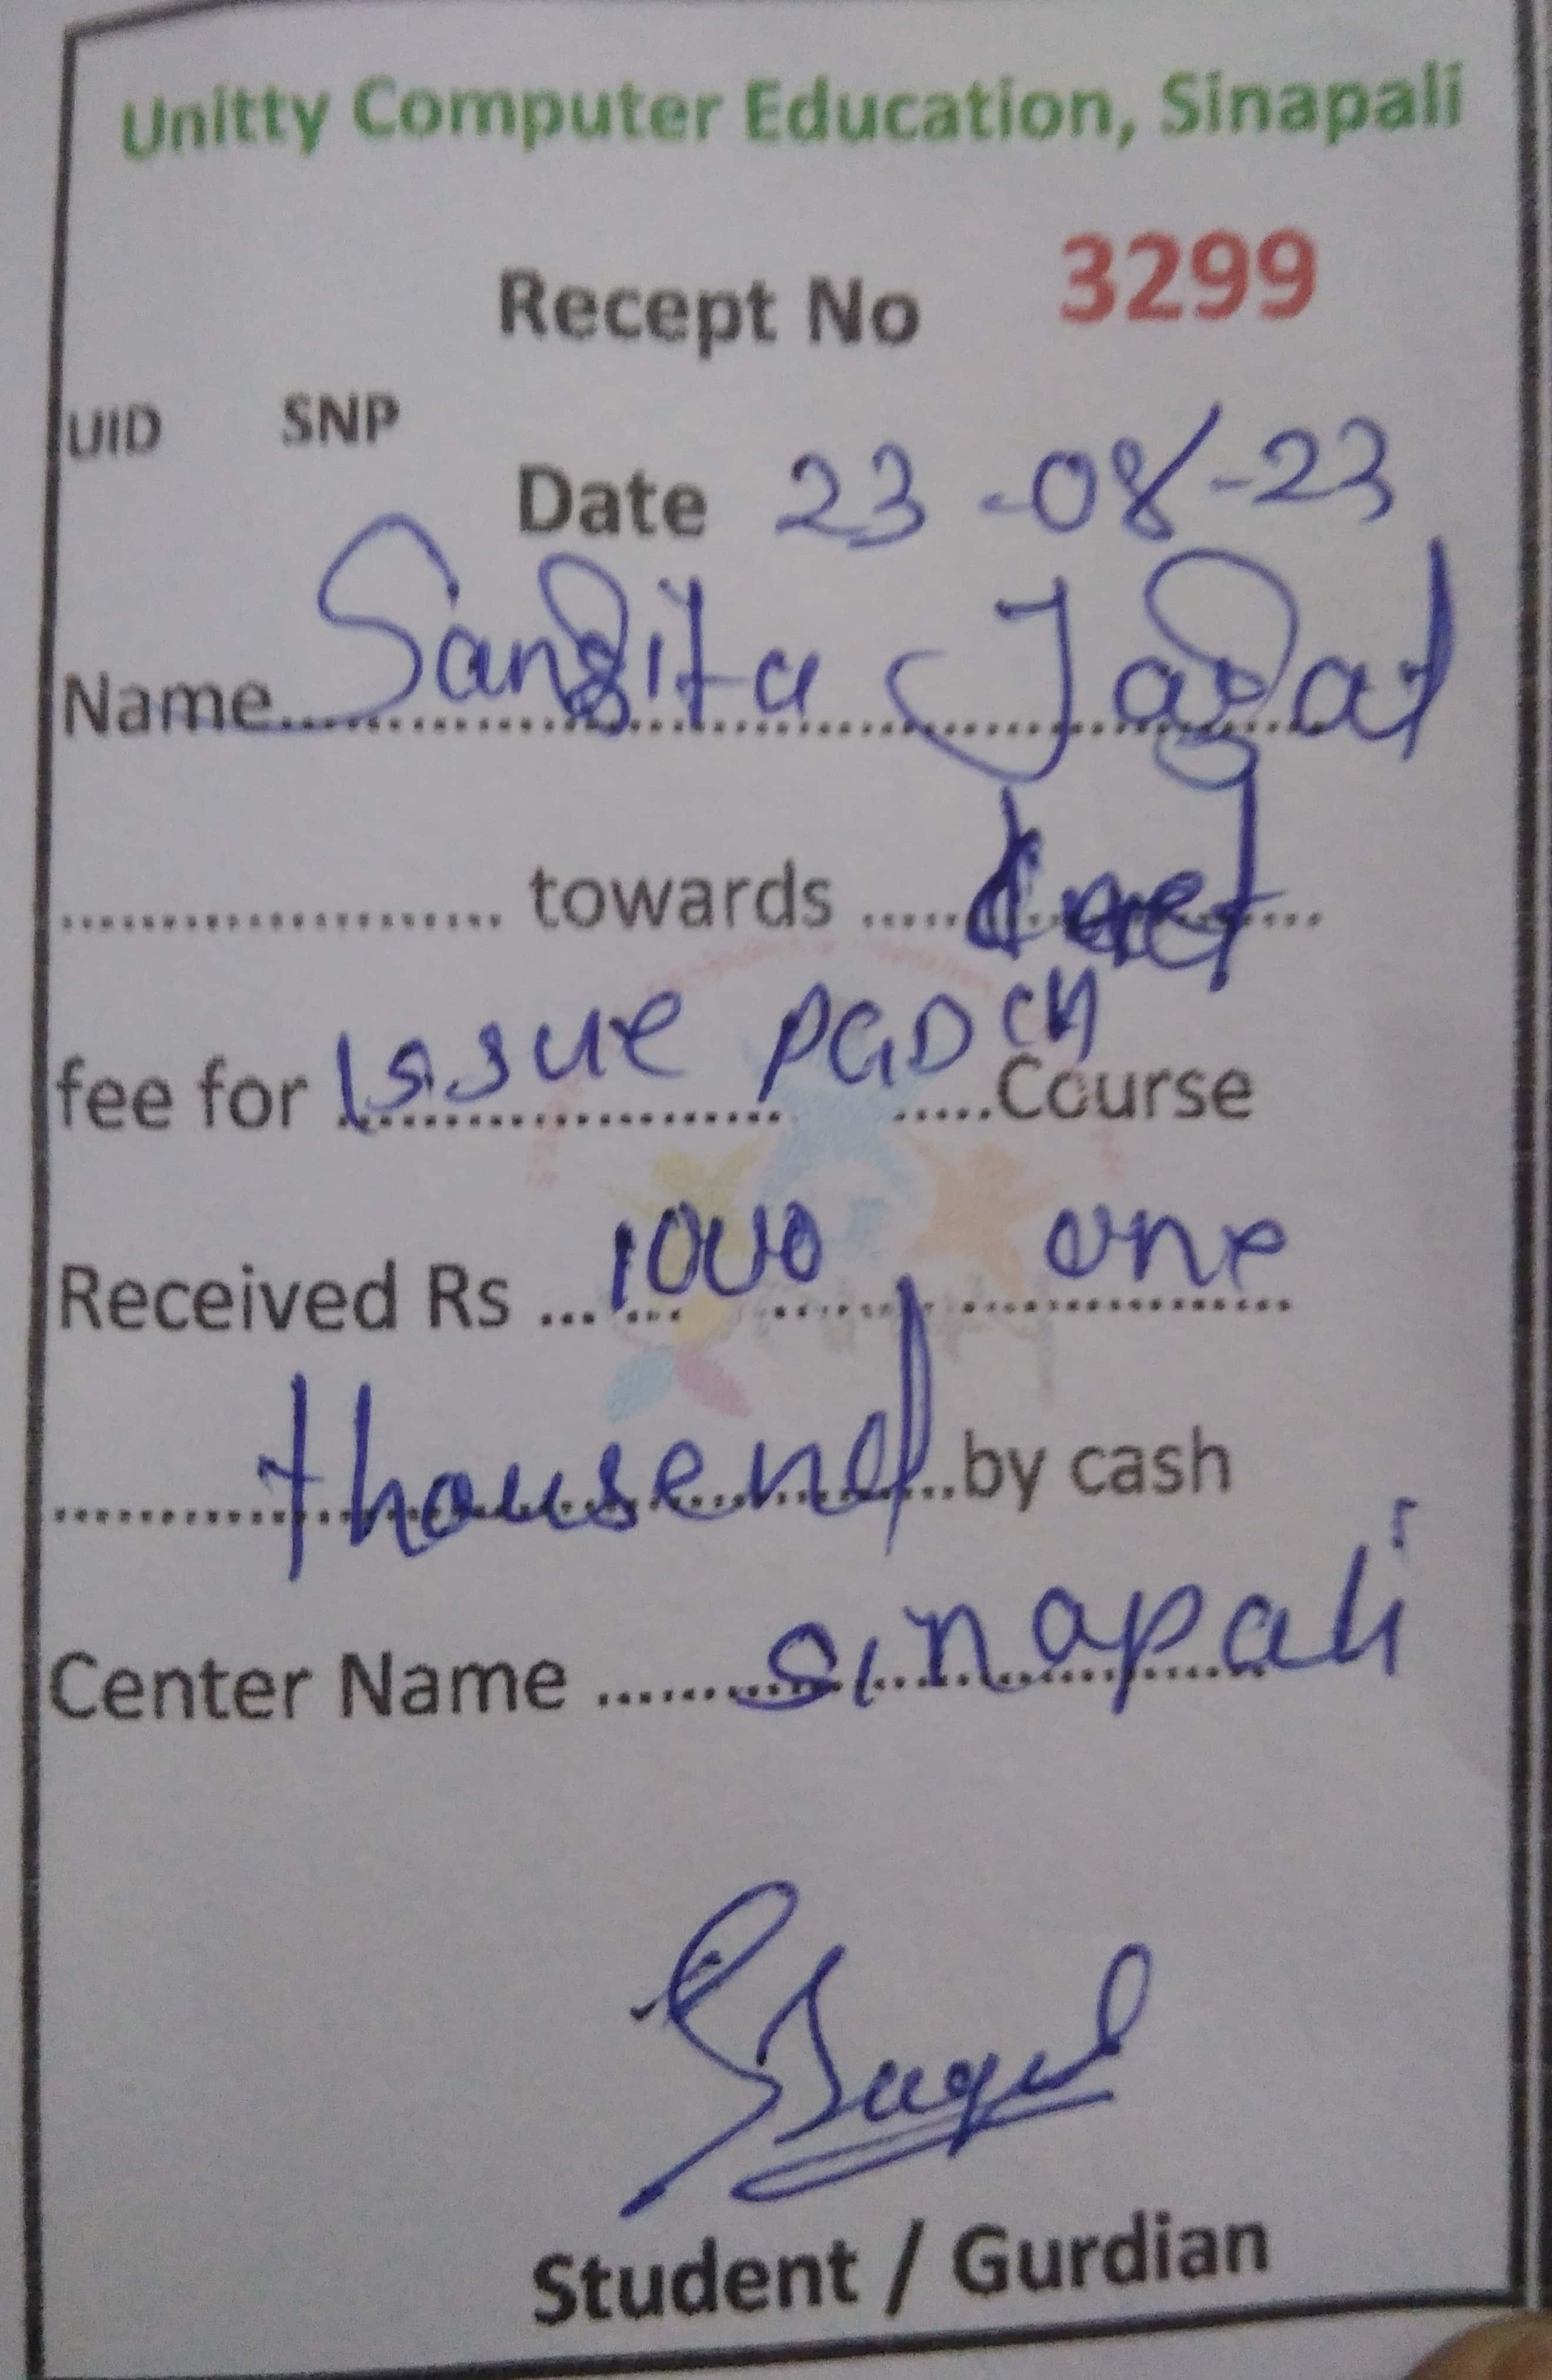 Unitty Computer Education, Sinapali
Recept No 3299
UID SNP
Date 23-08-23
Name Sangita Jagat
towards
fee for Issue PGDCA Course
Received Rs 1000 one
thousend by cash
Center Name sinapali
Student / Gurdian